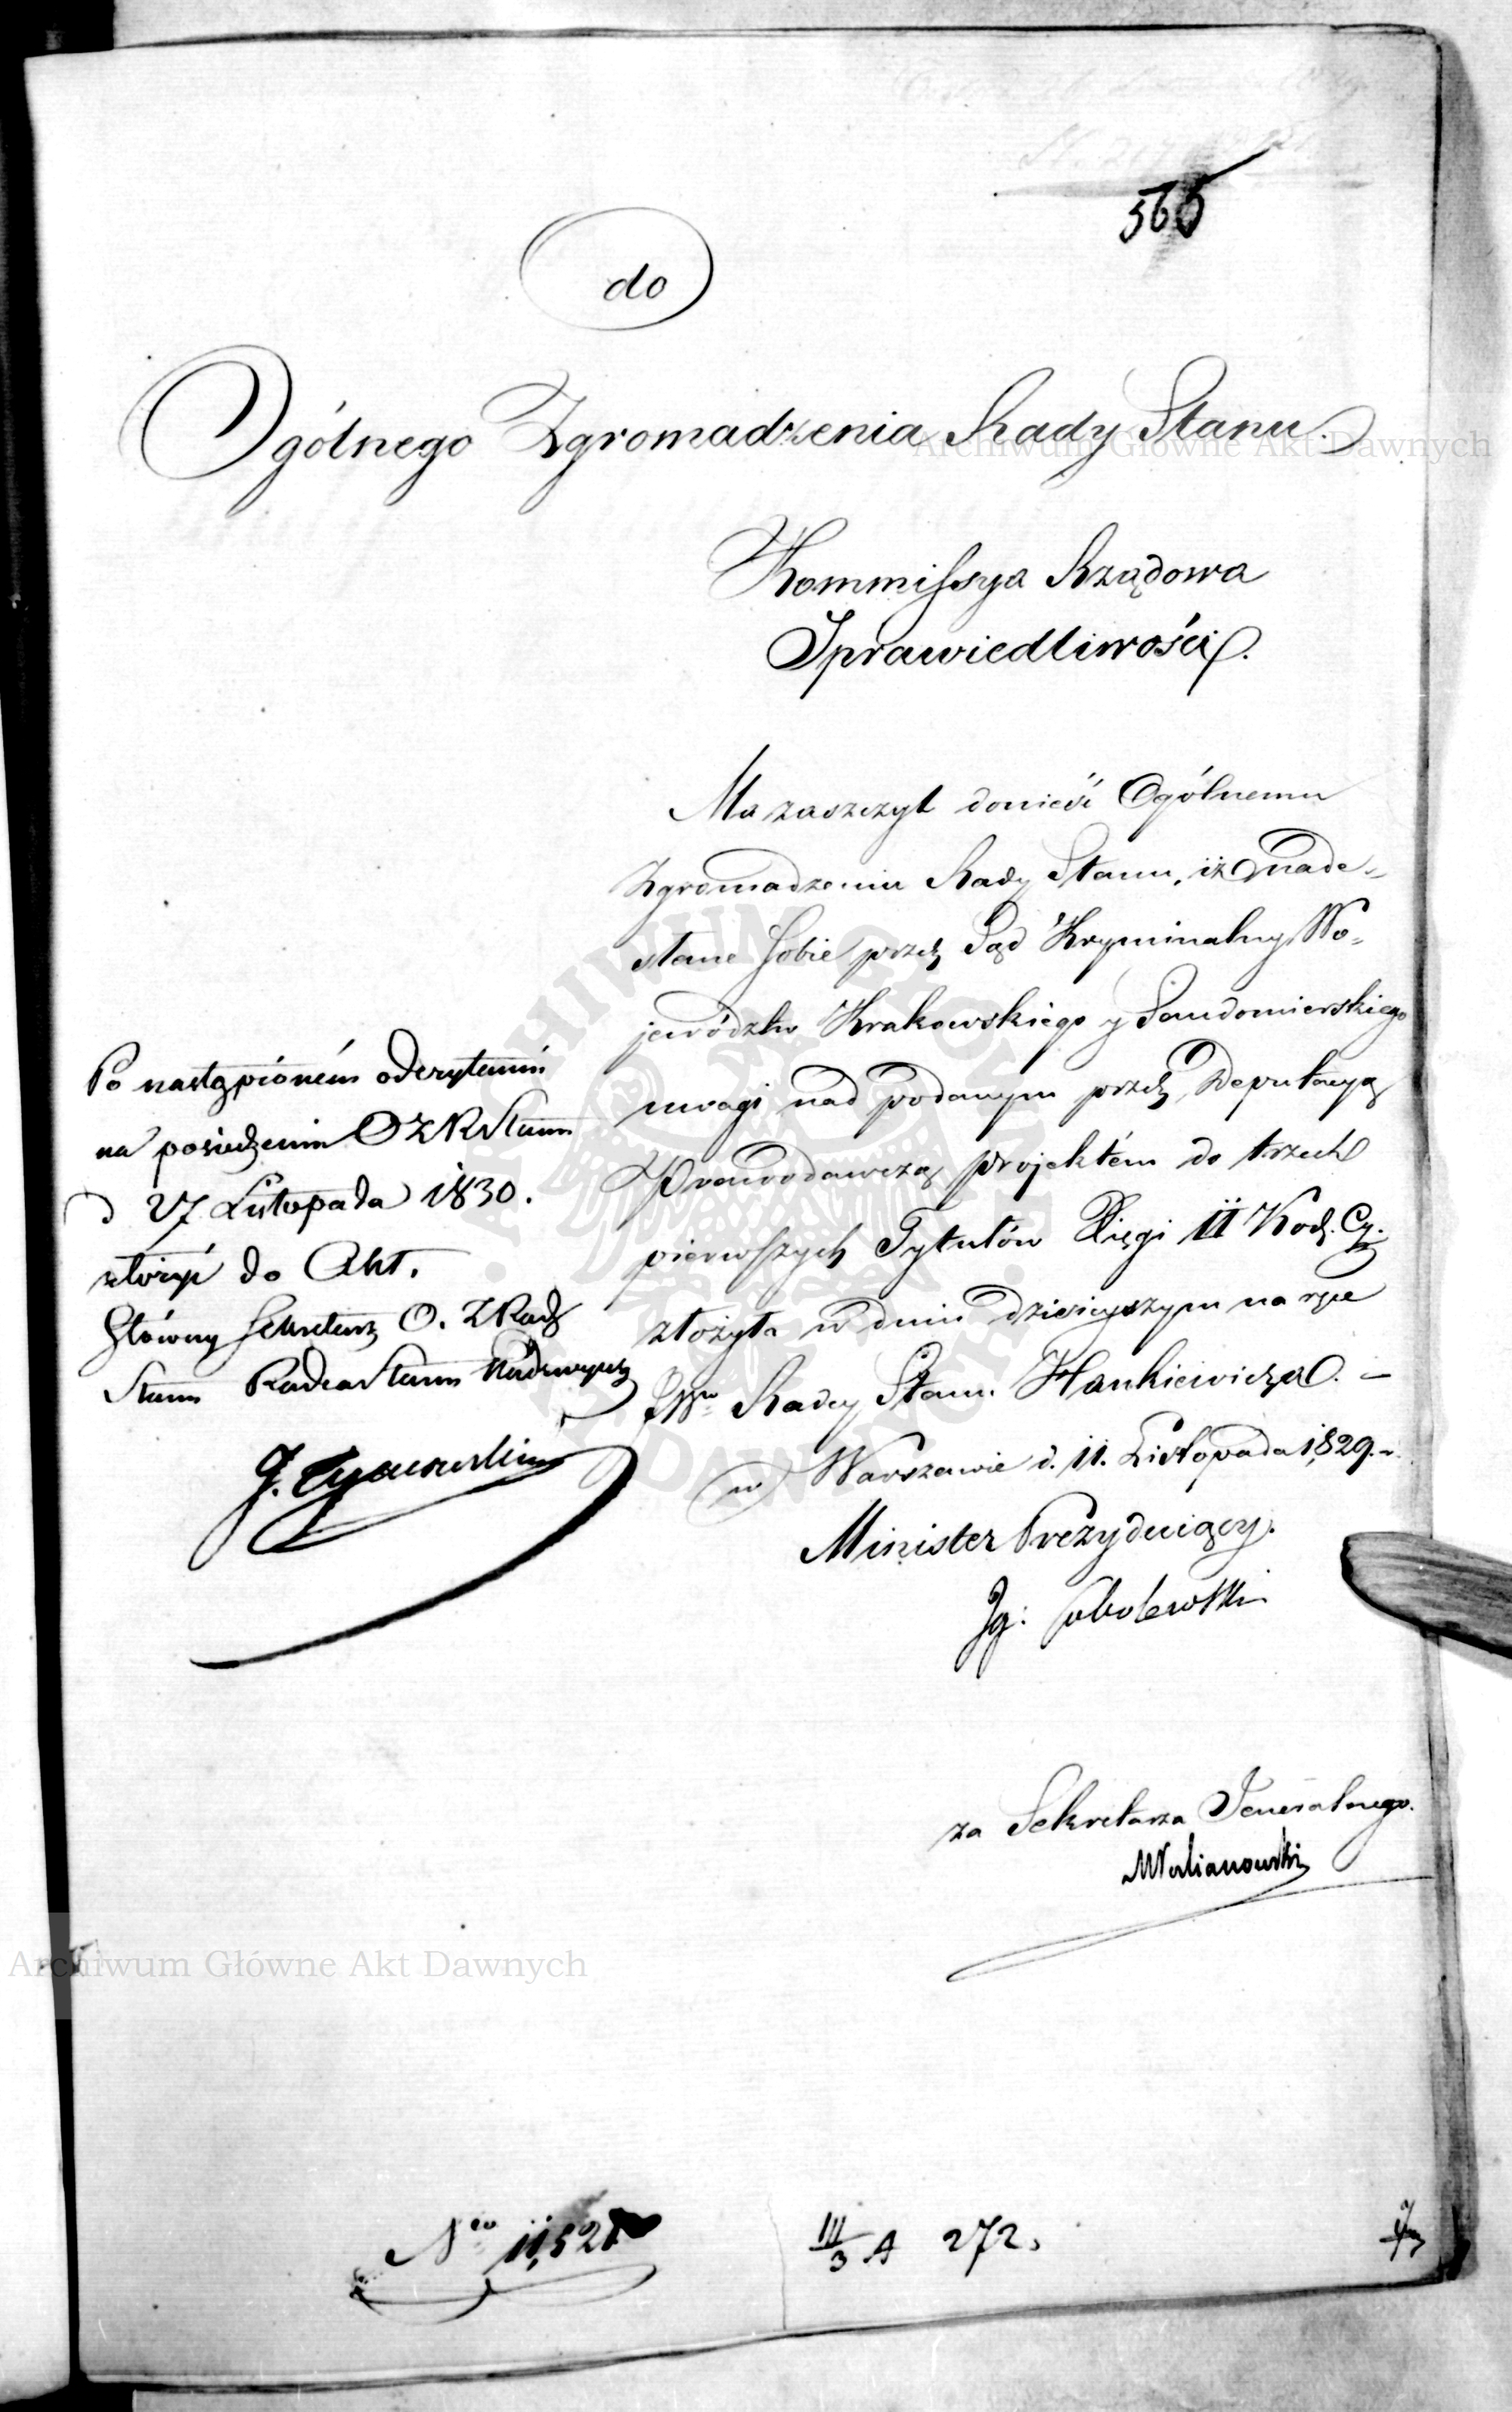 565
do
Ogólnego Zgromadzenia Rady Stanu.
Kommissya Rządowa
Sprawiedliwości.
Ma zaszczyt donieść Ogólnemu
Zgromadzeniu Rady Stanu, iż nade-
słane sobie przez Sąd Kryminalny Wo-
jewództw Krakowskiego y Sandomierskiego
uwagi nad podanym przez Deputacyą
Prawodawczą projektem do trzech
pierwszych Tytułów Xięgi II Kod. Cy.
złożyła w dniu dzisieyszym na ręce
JWo Radcy Stanu Hankiewicza. -
w Warszawie d. 11. Listopada 1829.
Minister Prezyduiący.
Ig: Sobolewski
za Sekretarza Jeneralnego.
MWalianowski
Po nastąpioném odczytaniu
na posiedzeniu O Z R Stanu
d 27 Listopada 1830.
złożyć do Akt.
Główny Sekretarz O. Z Rady
Stanu Radca Stanu Nadzwyczy
J. Tymowski
Nro 11,527
III/3 A 272.
Archiwum Główne Akt Dawnych
Archiwum Główne Akt Dawnych
ARCHIWUM GŁÓWNE AKT DAWNYCH